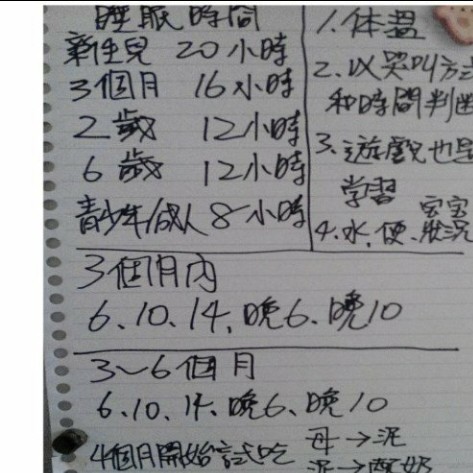 睡眠時間
新生兒 20小時
3個月 16小時
2歲 12小時
6歲 12小時
青少年/成人 8小時
1.体溫
2.以哭叫方式
和時間判斷
3.遊戲也是
學習
4.水、便、宝宝狀況
3個月內
6、10、14、晚6、晚10
3~6個月
6、10、14、晚6、晚10
4個月開始試吃 母→泥
泥→配奶